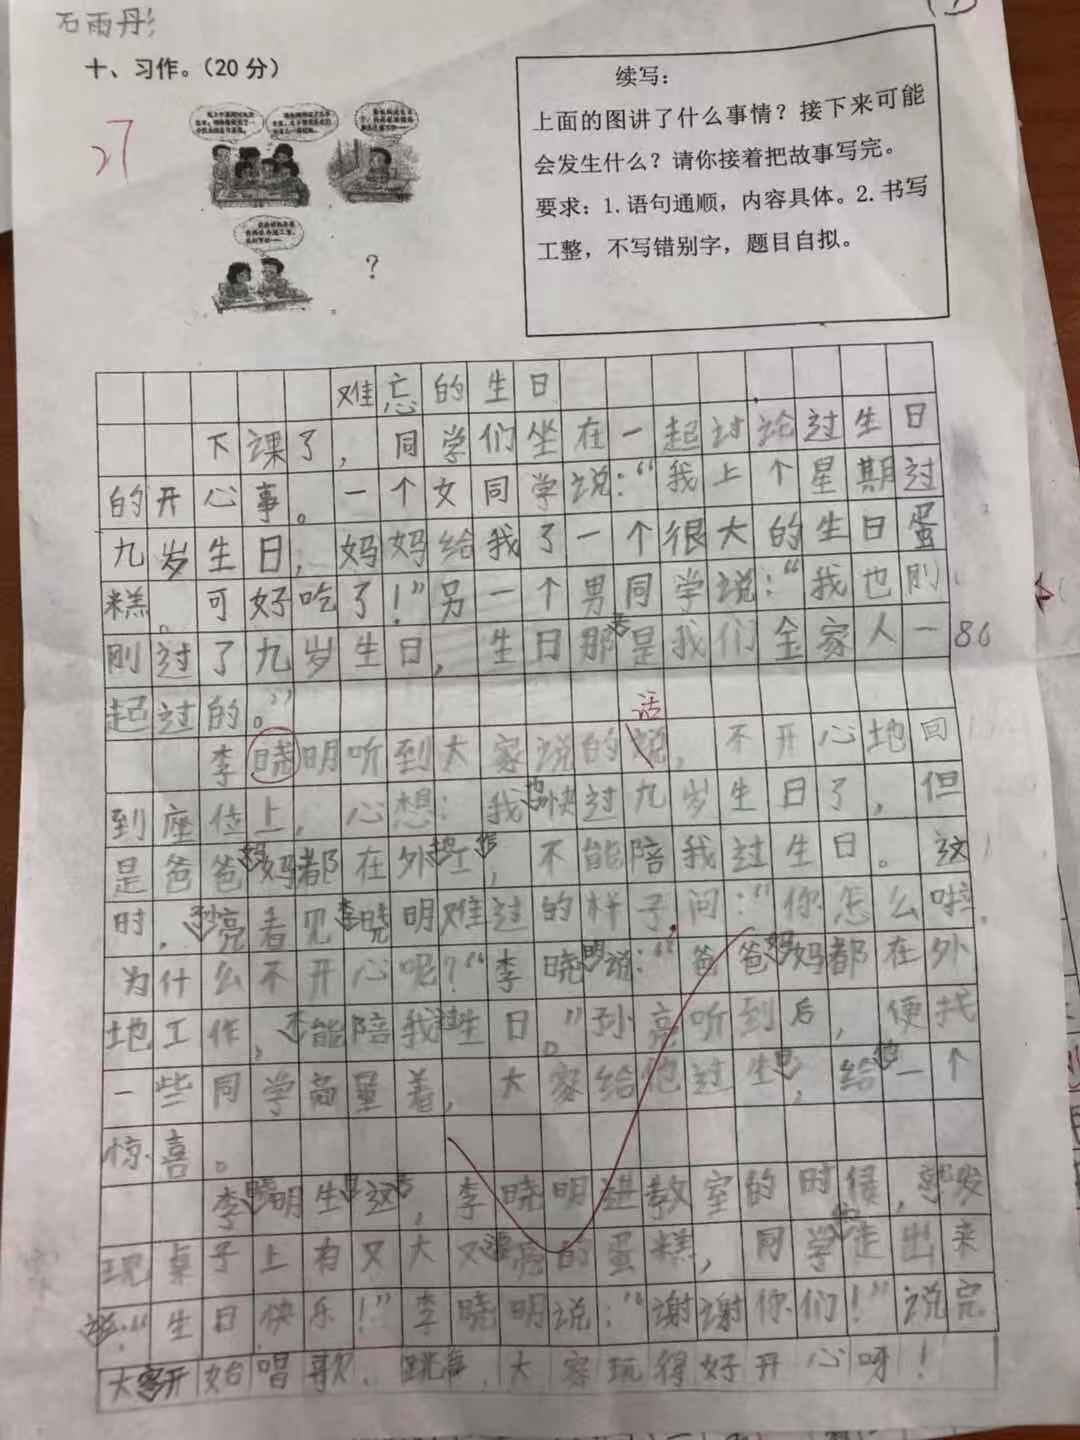 石雨彤
十、习作。（20分）
27
续写：
上面的图讲了什么事情？接下来可能
会发生什么？请你接着把故事写完。
要求：1.语句通顺，内容具体。2.书写
工整，不写错别字，题目自拟。
?
难忘的生日
下课了，同学们坐在一起讨论过生日
的开心事。一个女同学说：“我上个星期过
九岁生日，妈妈给我了一个很大的生日蛋
糕。可好吃了！”另一个男同学说：“我也刚
刚过了九岁生日，生日那是我们全家人一
86
起过的。”
话
李晓明听到大家说的说，不开心地回
到座位上，心想：我也快过九岁生日了，但
是爸爸妈妈都在外地工作，不能陪我过生日。这
时，孙亮看见李晓明难过的样子，问：“你怎么啦，
为什么不开心呢？“李晓明说：“爸爸妈妈都在外
地工作，不能陪我过生日。”孙亮听到后，便找
一些同学商量着，大家给他过生日，给他一个
惊喜。
李晓明生日这天，李晓明进教室的时候，就发
现桌子上有又大又漂亮的蛋糕，同学们走出来
说：“生日快乐！”李晓明说：“谢谢你们！”说完
大家开始唱歌、跳舞，大家玩得好开心呀！